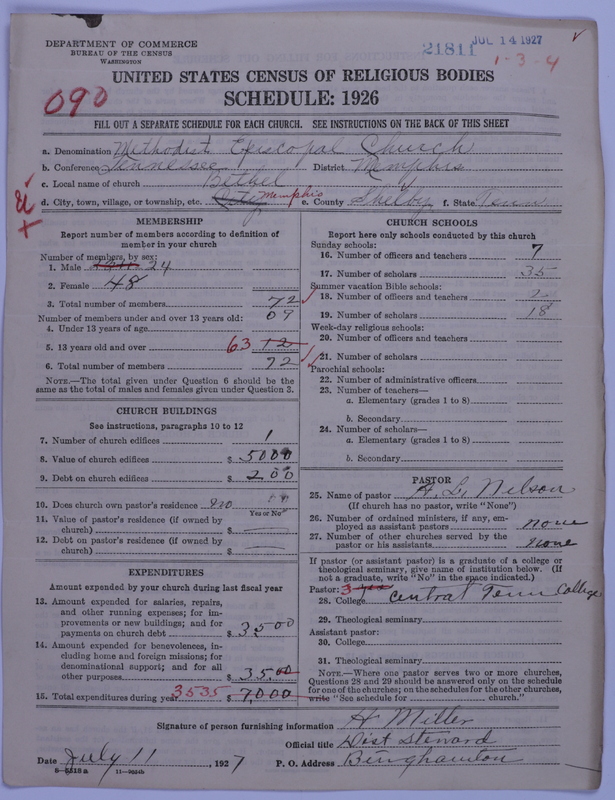 DEPARTMENT OF COMMERCE
BUREAU OF THE CENSUS
WASHINGTON
21811
JUL 14 1927
1-3-4
UNITED STATES CENSUS OF RELIGIOUS BODIES
SCHEDULE: 1926
090
FILL OUT A SEPARATE SCHEDULE FOR EACH CHURCH. SEE INSTRUCTIONS ON THE BACK OF THIS SHEET
a. Denomination Methodist Episcopal Church
b. Conference Tennessee District Memphis
c. Local name of church Bethel
d. City, town, village, or township, etc. City Memphis e. County Shelby f. State Tenn
MEMBERSHIP
Report number of members according to definition of
member in your church
Number of members, by sex:
1. Male 24
2. Female 48
3. Total number of members 72
Number of members under and over 13 years old:
4. Under 13 years of age 09
5. 13 years old and over 63 12
6. Total number of members 72
NOTE.—The total given under Question 6 should be the
same as the total of males and females given under Question 3.
CHURCH BUILDINGS
See instructions, paragraphs 10 to 12
7. Number of church edifices 1
8. Value of church edifices $ 5000
9. Debt on church edifices $ 200
10. Does church own pastor's residence no
Yes or No
11. Value of pastor's residence (if owned by
church) $
12. Debt on pastor's residence (if owned by
church) $
EXPENDITURES
Amount expended by your church during last fiscal year
13. Amount expended for salaries, repairs,
and other running expenses; for im-
provements or new buildings; and for
payments on church debt $ 3500
14. Amount expended for benevolences, in-
cluding home and foreign missions; for
denominational support; and for all
other purposes $ 35.00
15. Total expenditures during year 3535 $ 7,000
CHURCH SCHOOLS
Report here only schools conducted by this church
Sunday schools:
16. Number of officers and teachers 7
17. Number of scholars 35
Summer vacation Bible schools:
18. Number of officers and teachers 2
19. Number of scholars 18
Week-day religious schools:
20. Number of officers and teachers
21. Number of scholars
Parochial schools:
22. Number of administrative officers
23. Number of teachers—
a. Elementary (grades 1 to 8)
b. Secondary
24. Number of scholars—
a. Elementary (grades 1 to 8)
b. Secondary
PASTOR
25. Name of pastor H. L. Nelson
(If church has no pastor, write "None")
26. Number of ordained ministers, if any, em-
ployed as assistant pastors none
27. Number of other churches served by the
pastor or his assistants none
If pastor (or assistant pastor) is a graduate of a college or
theological seminary, give name of institution below. (If
not a graduate, write "No" in the space indicated.)
Pastor: 3 yes
28. College Central Tenn College
29. Theological seminary
Assistant pastor:
30. College
31. Theological seminary
NOTE.—Where one pastor serves two or more churches,
Questions 28 and 29 should be answered only on the schedule
for one of the churches; on the schedules for the other churches,
write "See schedule for church."
Signature of person furnishing information H Miller
Official title Dist Steward
Date July 11, 1927 P. O. Address Binghamton
8-5518a 11-9024b